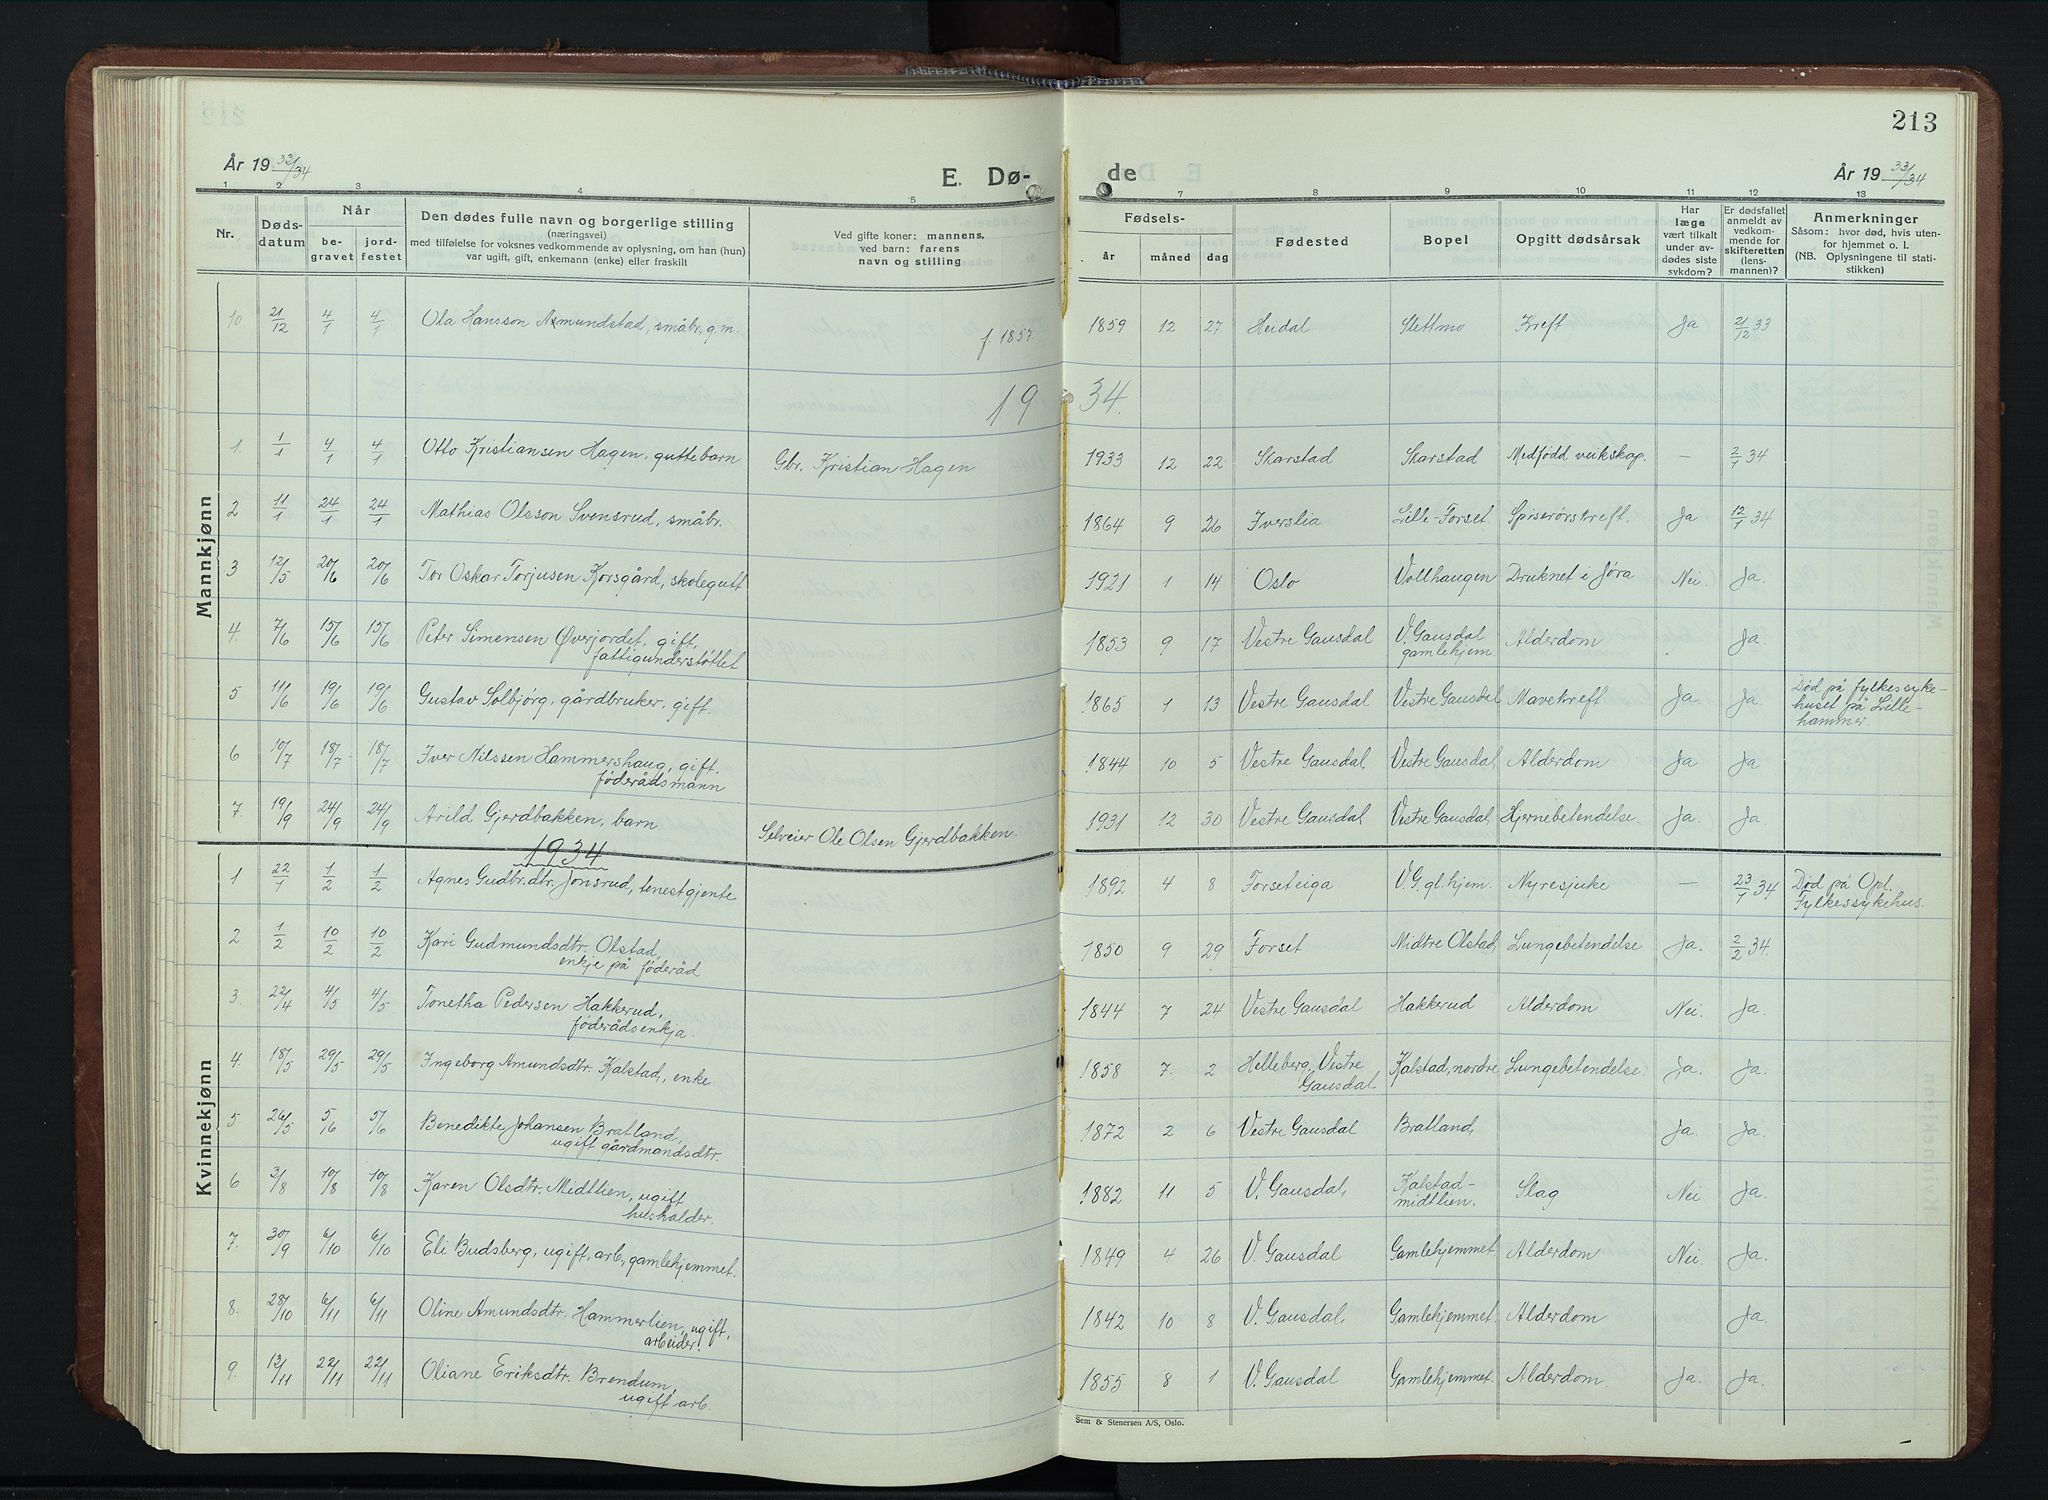 213
År 19 33/34
E. Dø-
de
År 19 33/34
1 2 3 4 5 7 8 9 10 11 12 13
Nr.
Døds-
datum
Når
be-
gravet
jord-
festet
Den dødes fulle navn og borgerlige stilling
(næringsvei)
med tilføielse for voksnes vedkommende av oplysning, om han (hun)
var ugift, gift, enkemann (enke) eller fraskilt
Ved gifte koner: mannens,
ved barn: farens
navn og stilling
Fødsels-
år måned dag
Fødested
Bopel
Opgitt dødsårsak
Har
læge
vært tilkalt
under av-
dødes siste
sykdom?
Er dødsfallet
anmeldt av
vedkom-
mende for
skifteretten
(lens-
mannen)?
Anmerkninger
Såsom: hvor død, hvis uten-
for hjemmet o. l.
(NB. Oplysningene til stati-
stikken)
Mannkjønn
10 21/12 4/1 4/1 Ola Hansson Åmundstad, småbr. g.m. f. 1857. 1859 12 27 Heidal Slettmo Kreft Ja 21/12 33
19 34.
1. 1/1 4/1 4/1 Otto Kristiansen Hagen, guttebarn Gbr. Kristian Hagen 1933 12 22 Skarstad Skarstad Medfødd veikskap. — 2/1 34
2 11/1 24/1 24/1 Mathias Olsson Svensrud, småbr. 1864 9 26 Iverslia Lille-Forset Spiserørskreft. Ja 12/1 34
3 12/5 20/6 20/6 Tor Oskar Torjusen Korsgård, skolegutt 1921 1 14 Oslo Vollhaugen Druknet i Jøra Nei. Ja.
4. 7/6 15/6 15/6 Peter Simensen Øverjordet, gift, 1853 9 17 Vestre Gausdal V. Gausdal Alderdom Ja.
fattigunderstøttet gamlehjem.
5 11/6 19/6 19/6 Gustav Solbjørg, gårdbruker, gift. 1865 1 13 Vestre Gausdal Vestre Gausdal Mavekreft Ja. Ja. Død på fylkessyke-
huset på Lille-
hammer.
6 10/7 18/7 18/7 Iver Nilssen Hammershaug, gift, 1844 10 5 Vestre Gausdal Vestre Gausdal, Alderdom Ja Ja
føderådsmann
7. 19/9 24/9 24/9 Arild Gjerdbakken, barn. Selveier Ole Olsen Gjerdbakken. 1931 12 30 Vestre Gausdal, Vestre Gausdal, Hjernebetendelse. Ja. Ja.
1934
Kvinnekjønn
1 22/1 1/2 1/2 Agnes Gudbr.dtr. Jonsrud, tenestgjente 1892 4 8 Forseteiga V. G. gl. hjem. Nyresjuke — 23/1 34 Død på Opl.
Fylkessykehus.
2 1/2 10/2 10/2 Kari Gudmundsdtr. Olstad, 1850 9 29 Forset Midtre Olstad, Lungebetendelse Ja. 2/2 34.
enkje på føderåd
3. 22/4 4/5 4/5. Tonetha Pedersen Hakkerud, 1844 7 24 Vestre Gausdal Hakkerud Alderdom Nei. Ja.
føderådsenkja.
4. 18/5 29/5 29/5 Ingeborg Amundsdtr. Kalstad, enke 1858 7. 2 Helleberg, Vestre Kalstad, nordre Lungebetendelse. Ja. Ja.
Gausdal
5 26/5 5/6 5/6 Benedikte Johansen Bratland, 1872 2 6 Vestre Gausdal Bratland, Ja. Ja.
ugift gårdmandsdtr.
6 3/8 10/8 10/8 Karen Olsdtr. Midtlien, ugift 1882 11 5 V. Gausdal, Kalstad- Slag Nei Ja.
husholder. midtlien.
7. 30/9 6/10 6/10 Eli Budsberg, ugift, arb., gamlehjemmet. 1849 4 26 V. Gausdal Gamlehjemmet. Alderdom Nei. Ja.
8. 28/10 6/11 6/11 Oline Amundsdtr. Hammerlien, ugift, 1842 10 8 V. Gausdal, Gamlehjemmet. Alderdom Ja.
arbeider.
9. 13/11 22/11 22/11 Oliane Eriksdtr. Brendum, 1855 8 1 V. Gausdal Gamlehjemmet. Alderdom. Ja. Ja.
ugift arb.
Sem & Stenersen A/S, Oslo.